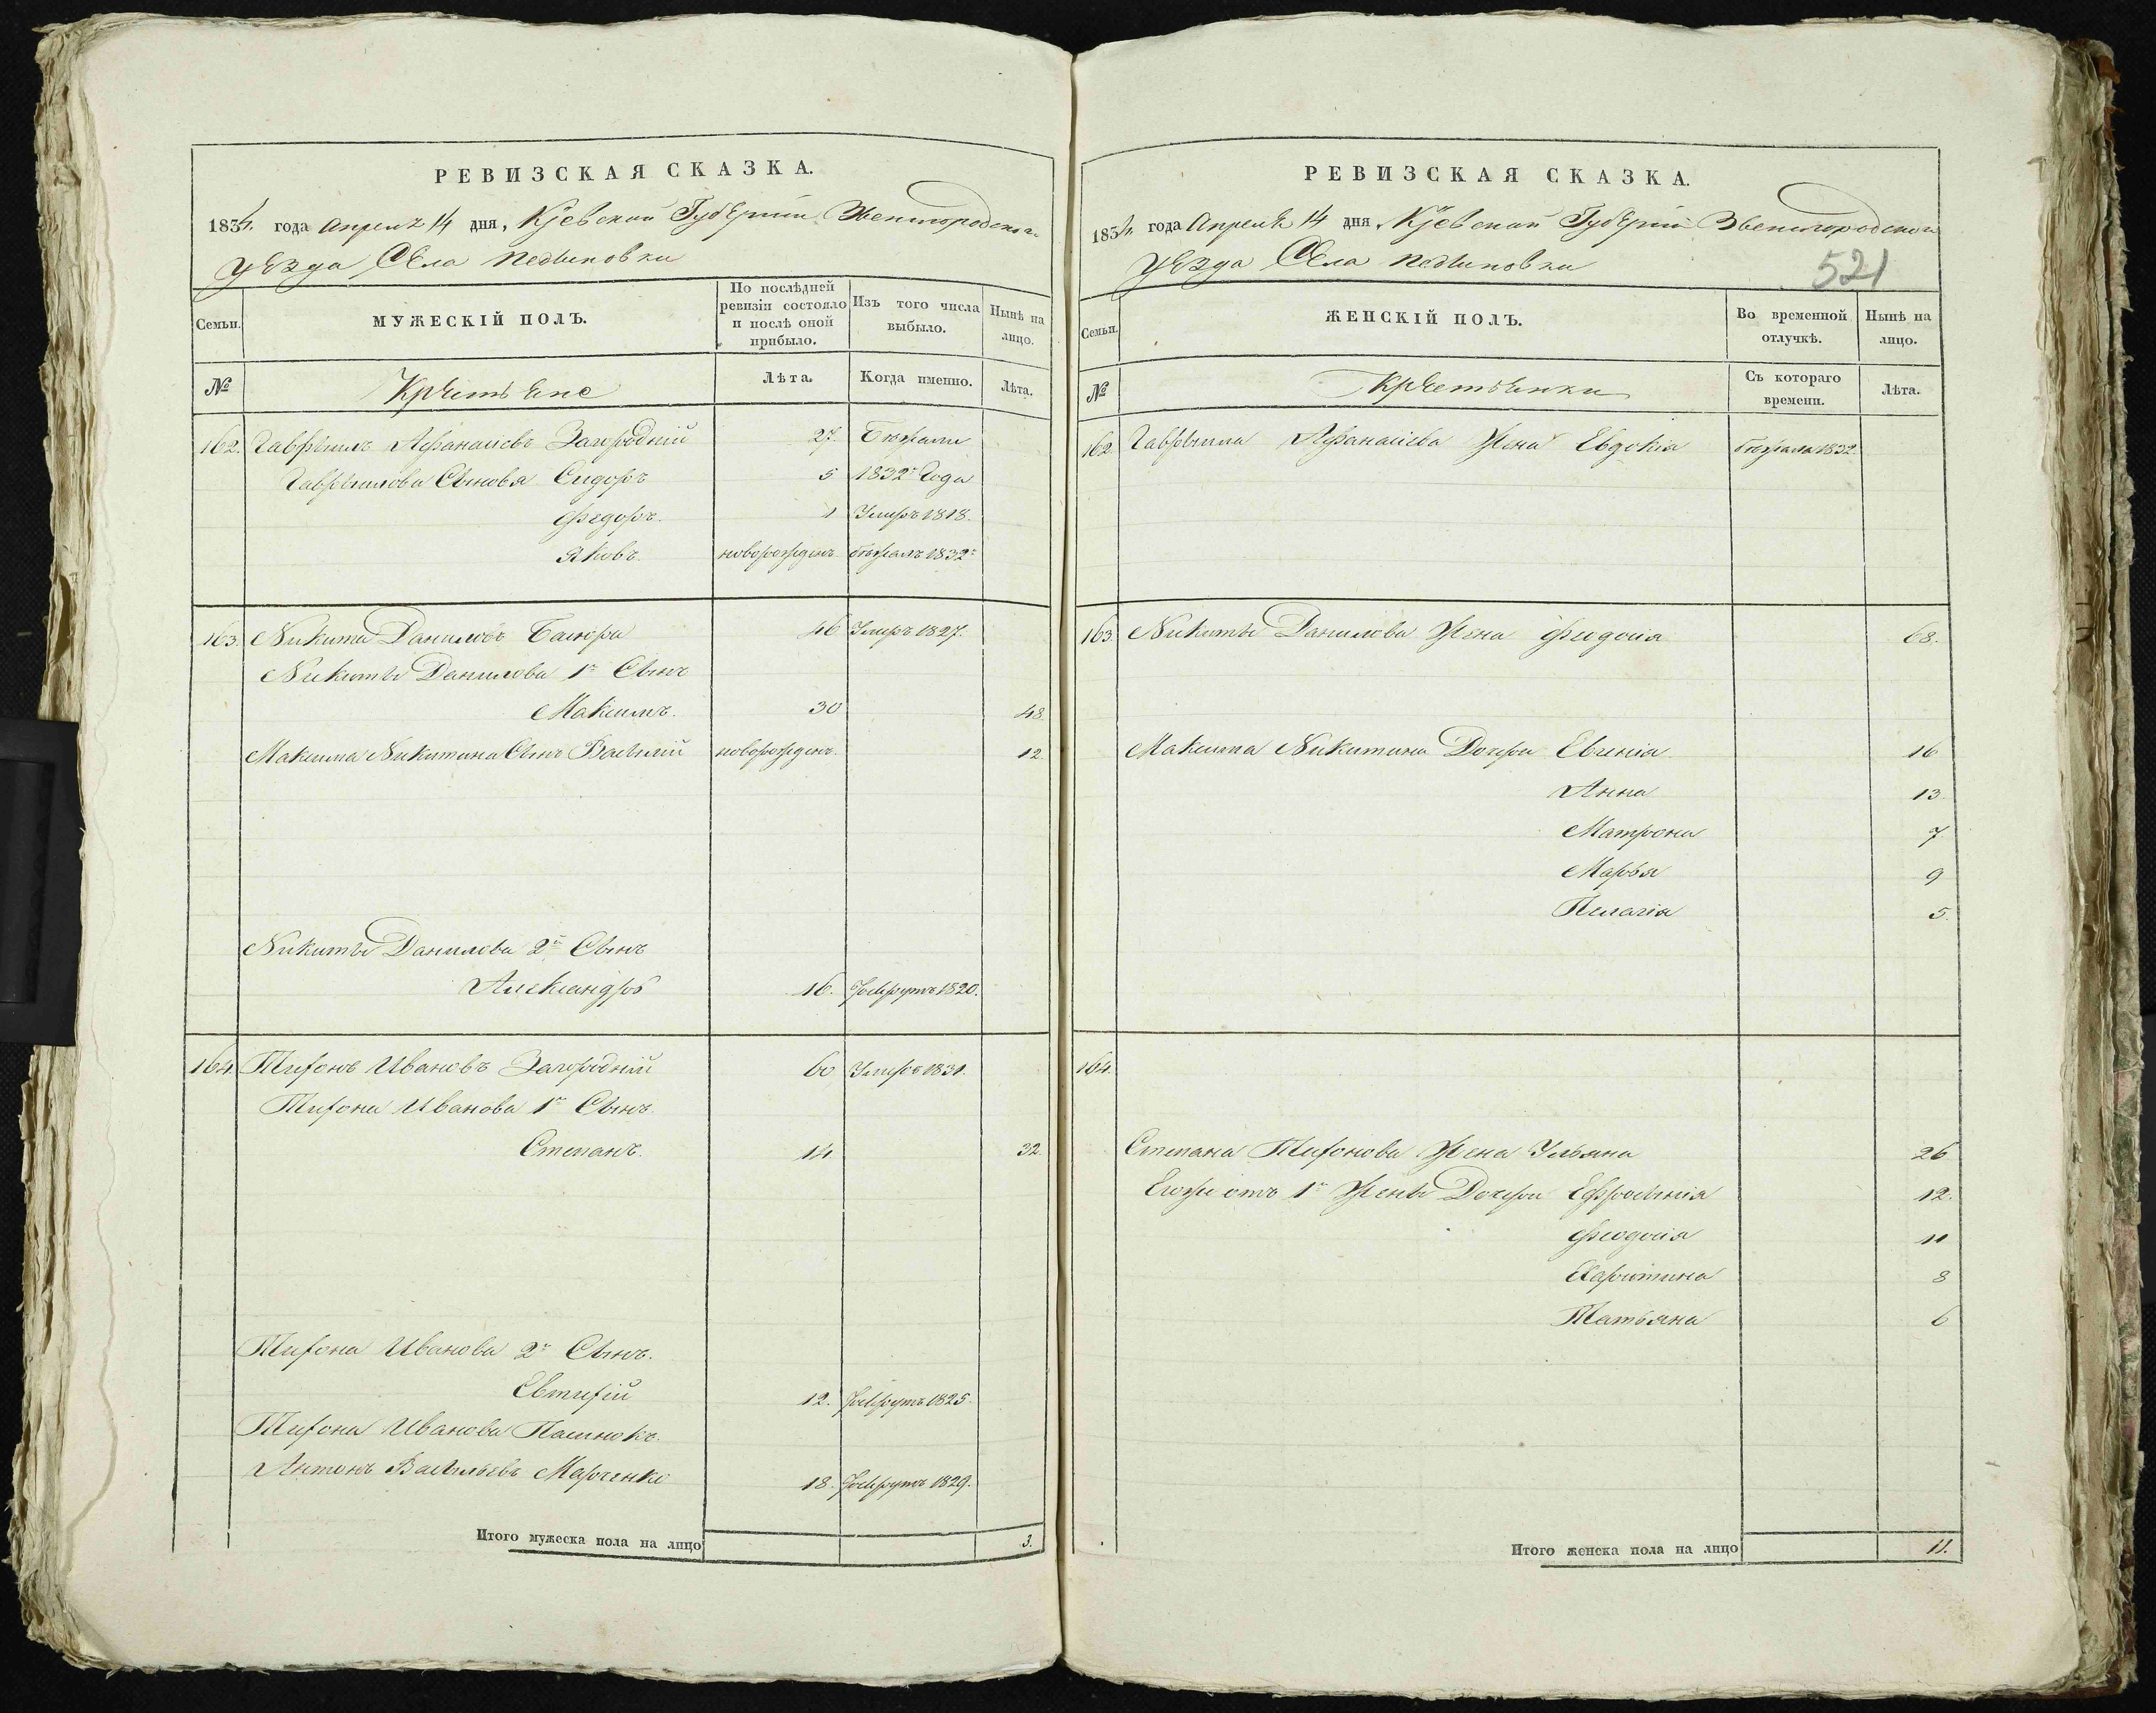 РЕВИЗСКАЯ СКАЗКА.
1834. года Апреля 14 дня, Кіевской Губерніи Звенигородскаго
уезда Села Педыновки
Семьи.
МУЖЕСКІЙ ПОЛЪ.
По послѣдней ревизіи состояло и послѣ оной прибыло.
Изъ того числа выбыло.
Нынѣ на лицо.
№ Крестьяне Лѣта. Когда именно. Лѣта.
162. Гаврыилъ Афанасіевъ Загородній 27. Бѣжали
Гаврыилова Сыновя Сидоръ 5 1832го Года
Федоръ. 1 Умеръ 1818.
Яковъ. новорожденъ бѣжалъ 1832го
163. Никита Даниловъ 46 Умеръ 1827.
Никиты Данилова 1й Сынъ
Максимъ. 30 48.
Максима Никитина Сынъ Васылій новорожденъ. 12.
Никиты Данилова 2й Сынъ
Александръ 16. рекрутъ 1820.
164. Тихонъ Ивановъ Загородній 60 Умеръ 1831.
Тихона Иванова 1й Сынъ.
Степанъ. 14 32.
Тихона Иванова 2й Сынъ.
Евтихій 12. рекрутъ 1825.
Тихона Иванова Пасынокъ.
Антонъ Васыльевъ Марченко 18. рекрутъ 1829.
Итого мужеска пола на лицо 3.
РЕВИЗСКАЯ СКАЗКА.
1834. года Апреля 14 дня, Кіевской Губерніи Звенигородскаго
уезда Села Педыновки
521
Семьи.
ЖЕНСКІЙ ПОЛЪ.
Во временной отлучкѣ.
Нынѣ на лицо.
№ Крестьянки Съ котораго времени. Лѣта.
162. Гаврыила Афанасіева Жена Евдокія бѣжала 1832.
163. Никиты Данилова Жена Феодосія 68.
Максима Никитина Дочери Евгенія 16
Анна 13.
Матрона 7
Марья 9
Пелагія 5.
164.
Степана Тихонова Жена Ульяна 26
Егожъ отъ 1й Жены Дочери Ефросынія 12.
Феодосія 11
Харитина 8
Татьяна 6
Итого женска пола на лицо 11.